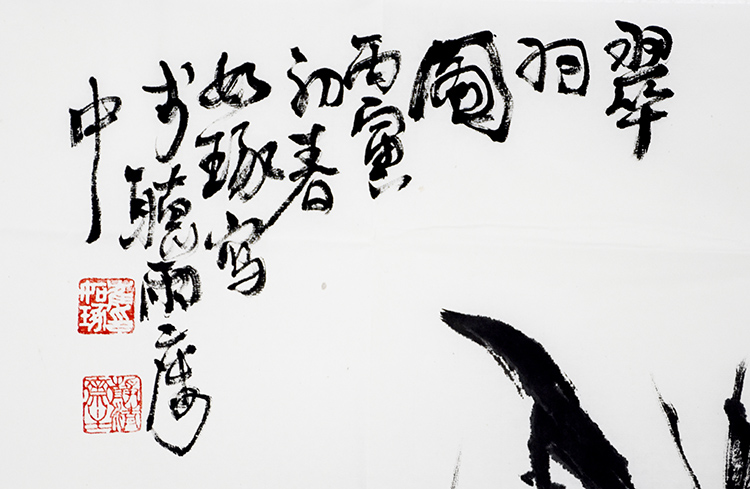 翠羽图
丙寅
初春
如琢写
于聽雨廔
中